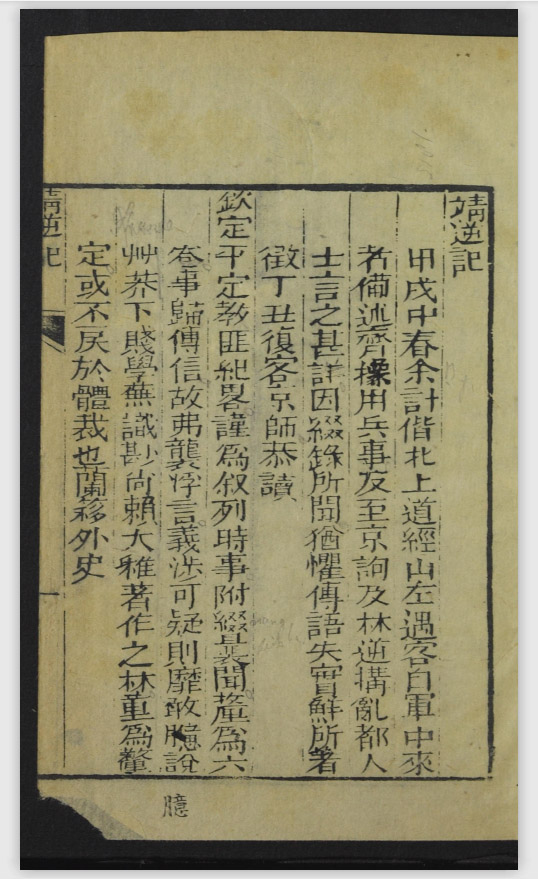 靖逆記
甲戌中春余計偕北上道經山左遇客自軍中來
者備述齊操用兵事及至京詢及林逆搆亂都人
士言之甚詳因綴錄所聞猶懼傳語失實鮮所著
徵丁丑復客京師恭讀
欽定平定教匪紀畧謹爲叙列時事附綴異聞釐爲六
卷事歸傳信故弗襲浮言義涉可疑則靡敢臆說
艸莽下賤學蕪識尠尚賴大雅著作之林重爲釐
定或不戾於體裁也蘭簃外史
靖逆記
一
臆